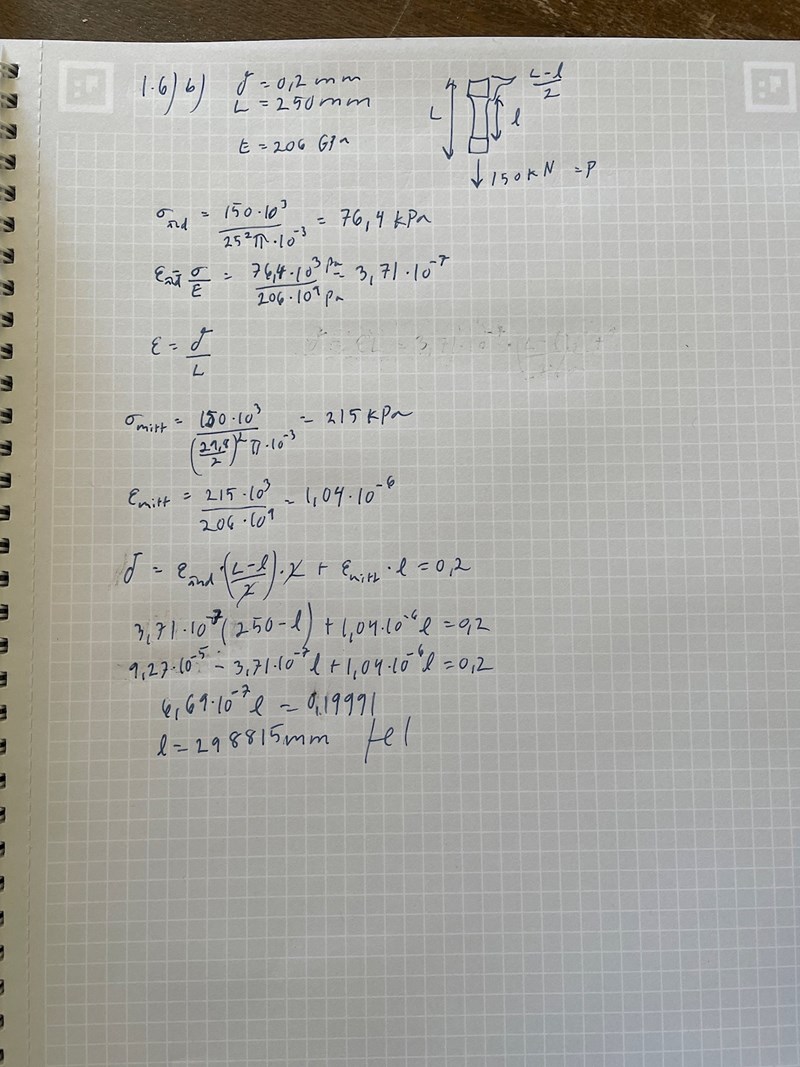 1.6) b) δ = 0,2 mm
L = 250 mm
E = 206 GPa
L
L-l/2
l
150 kN = P
σänd = 150·10³/25²π·10⁻³ = 76,4 kPa
εänd = σ/E = 76,4·10³ Pa/206·10⁹ Pa = 3,71·10⁻⁷
ε = δ/L
σmitt = 150·10³/(29,8/2)²π·10⁻³ = 215 kPa
εmitt = 215·10³/206·10⁹ = 1,04·10⁻⁶
δ = εänd·(L-l/2)·2 + εmitt·l = 0,2
3,71·10⁻⁷(250-l) + 1,04·10⁻⁶l = 0,2
9,27·10⁻⁵ - 3,71·10⁻⁷l + 1,04·10⁻⁶l = 0,2
6,69·10⁻⁷l = 0,19991
l = 298815mm fel